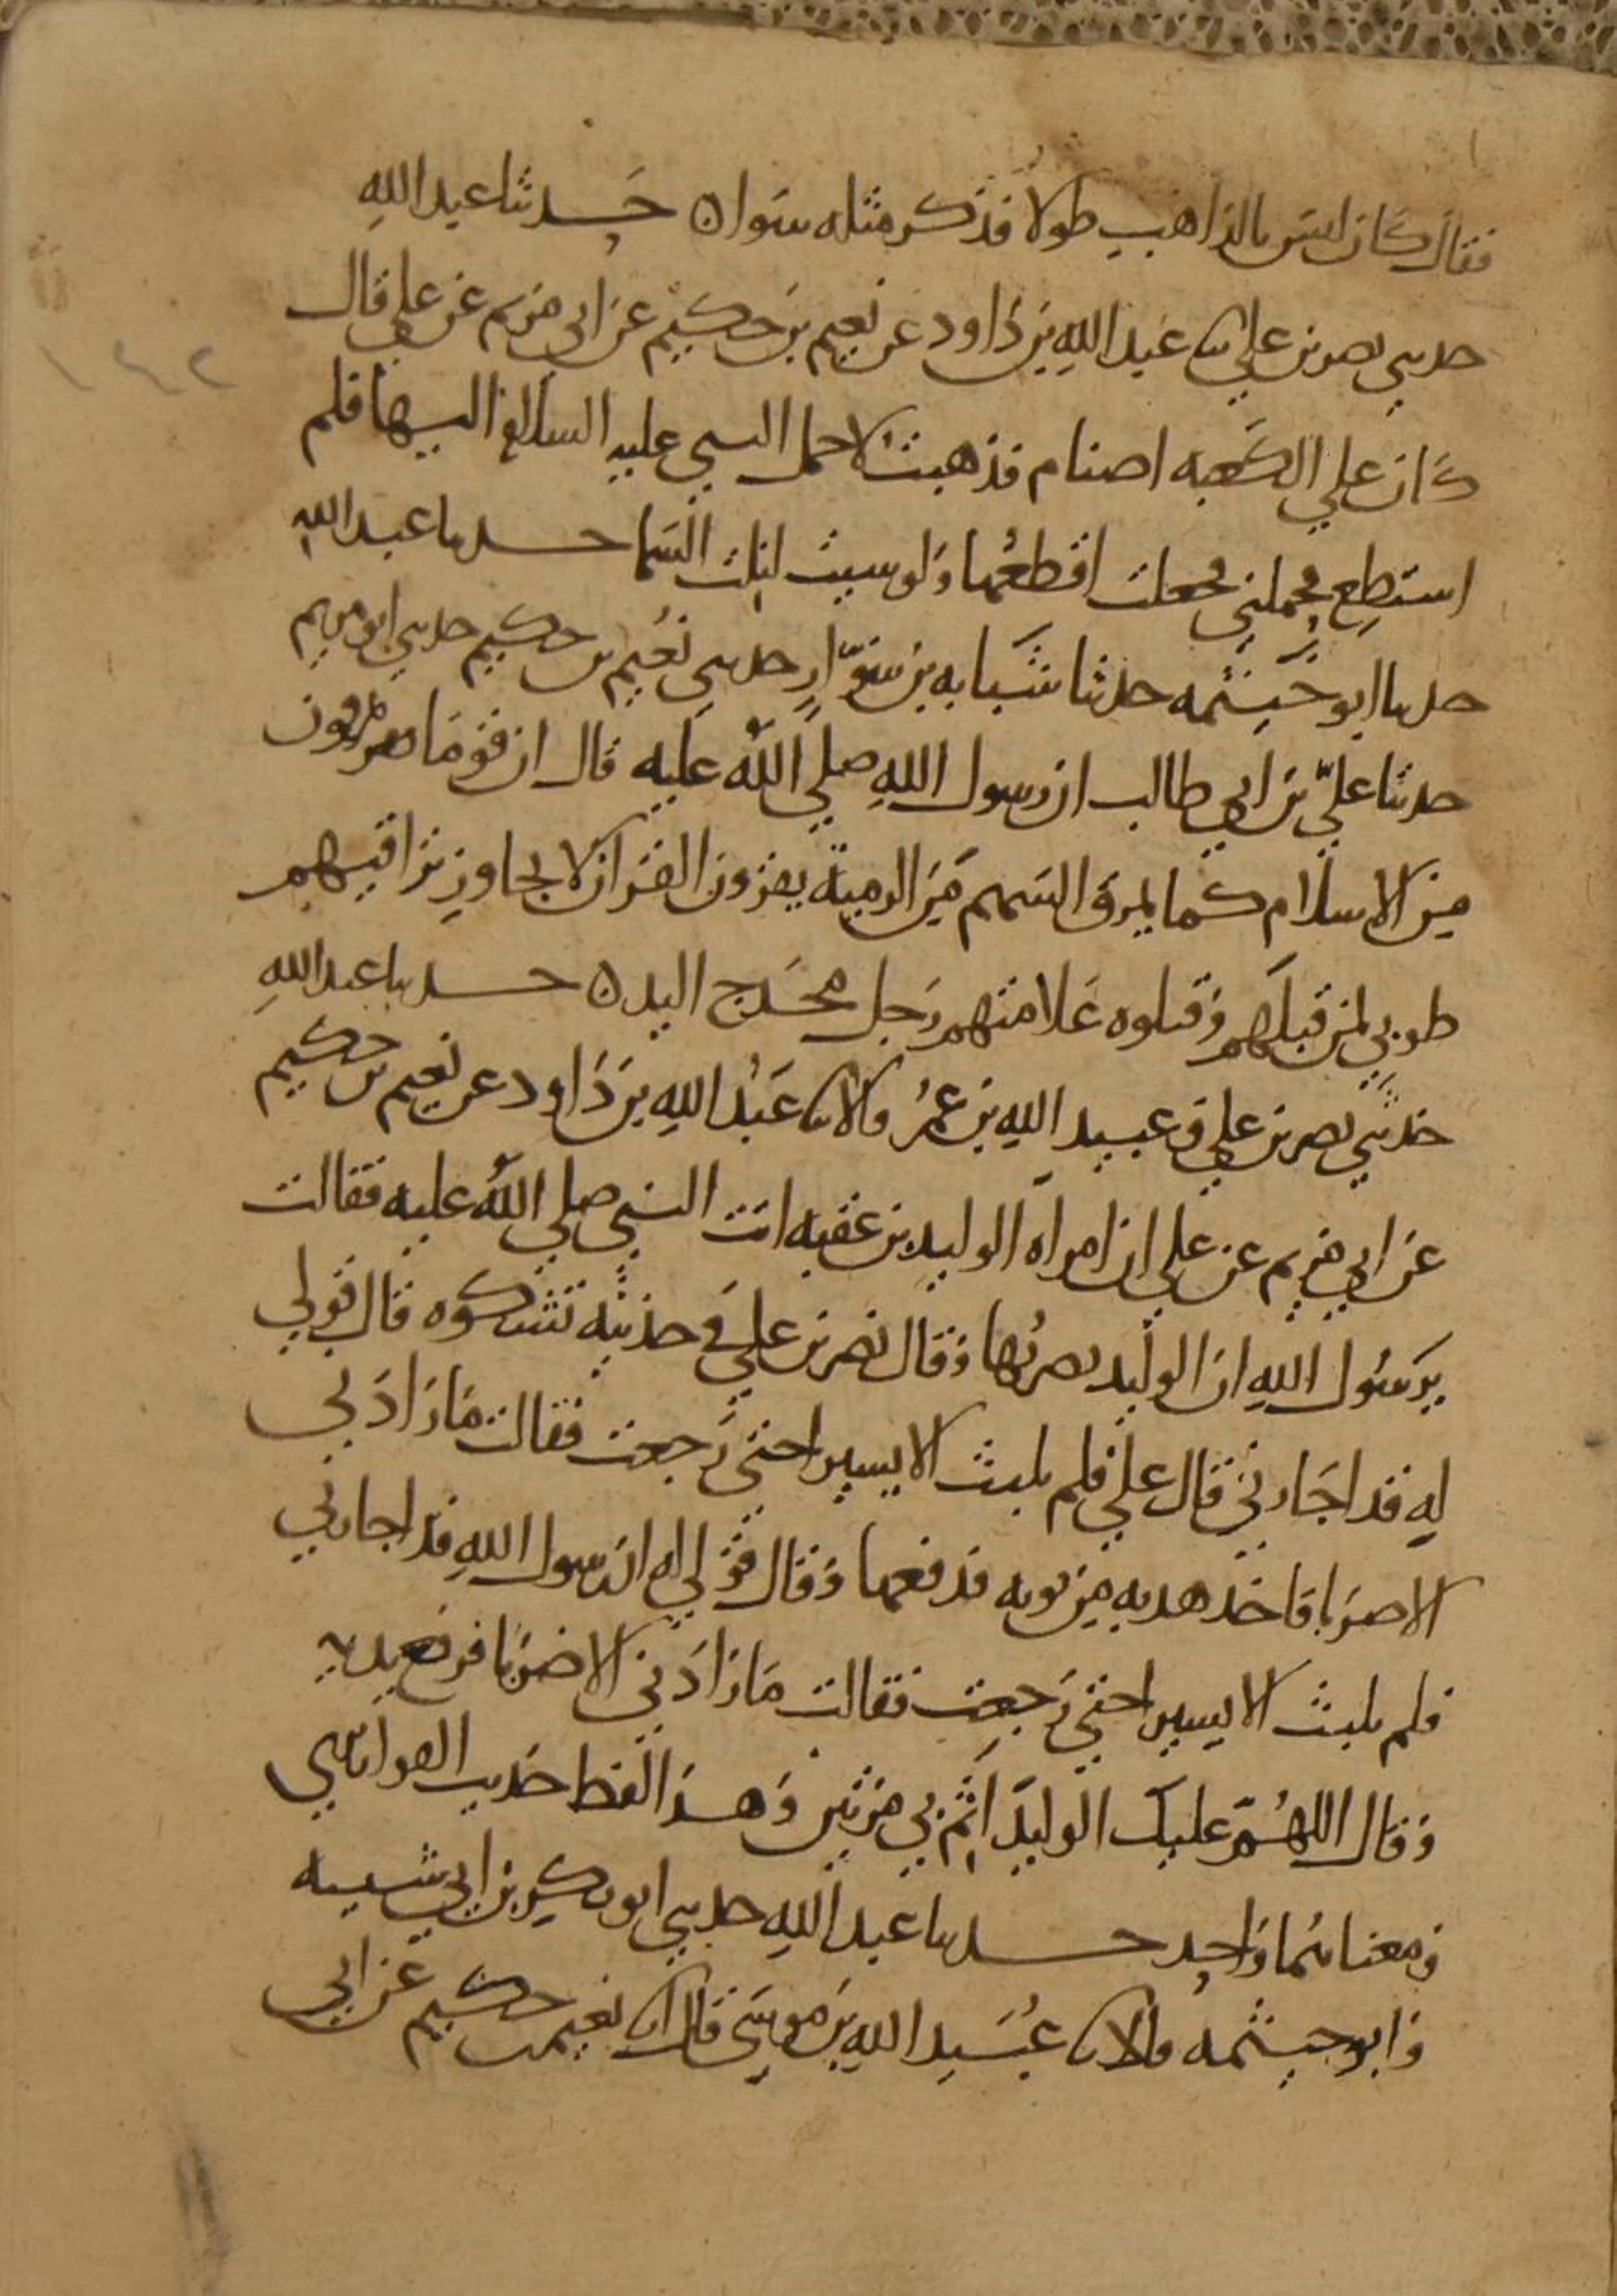 فقال كان ليس بالذاهب طولا فذكر مثله سوا ٥ حدثنا عبد الله
حدثني نصر بن علي نا عبد الله بن داود عن نعيم بن حكيم عن ابي مريم عن علي قال
كان علي الكعبه اصنام فذهبت لاحمل النبي عليه السلام اليها فلم
استطع فحملني فجعلت اقطعها ولو شيت لنلت السما حدثنا عبد الله
حدثنا ابو خيثمه حدثنا شبابه بن سوار حدثني نعيم بن حكيم حدثني ابو مريم
حدثنا علي بن ابي طالب ان رسول الله صلي الله عليه قال ان قوما يمرقون
من الاسلام كما يمرق السهم من الرميه يقرون القران لا يجاوز تراقيهم
طوبي لمن قتلهم وقتلوه علامتهم رجل مخدج اليد ٥ حدثنا عبد الله
حدثني نصر بن علي وعبيد الله بن عمر قالا نا عبد الله بن داود عن نعيم بن حكيم
عن ابي مريم عن علي ان امراه الوليد بن عقبه اتت النبي صلي الله عليه فقالت
يرسول الله ان الوليد يضربها وقال نصر بن علي في حديثه تشكوه قال قولي
له قد اجارني قال علي فلم يلبث الا يسيرا حتي رجعت فقالت ما زادني
الا ضربا فاخذ هدبه من ثوبه فدفعها وقال قولي له ان رسول الله قد اجارني
فلم يلبث الا يسيرا حتي رجعت فقالت ما زادني الا ضربا فرفع يديه
وقال اللهم عليك الوليد اثم بي مرتين وهذا لفظ حديث القواريري
ومعناهما واحد حدثنا عبد الله حدثني ابو بكر بن ابي شيبه
وابو خيثمه قالا نا عبيد الله بن موسي قال انا نعيم بن حكيم عن ابي
١٤٢